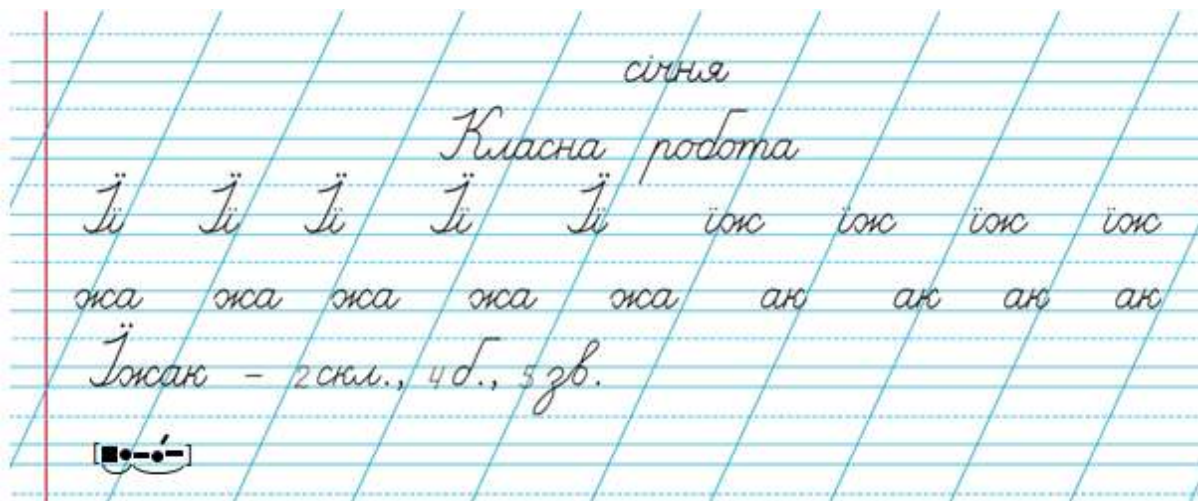 січня
Класна робота
Її Її Її Її Її їж їж їж їж
жа жа жа жа жа ак ак ак ак
Їжак - 2 скл., 4 б., 5 зв.
[■•–•́–]